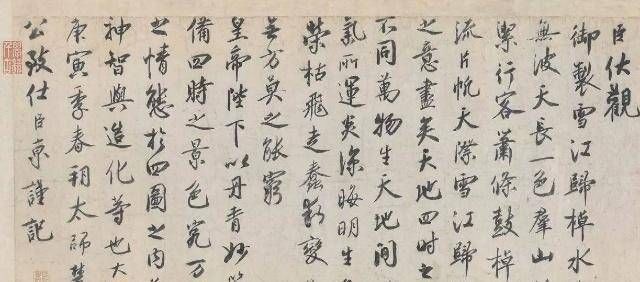 臣伏觀
御製雪江歸棹水
無波天長一色羣山
潔行客蕭條鼓棹
流片帆天際雪江歸
之意盡矣天地四時之
不同萬物生天地間
氣所運炎涼晦明生
榮枯飛走蠢動變
無方莫之能窮
皇帝陛下以丹青妙
備四時之景色究万
之情態於四圖之内
神智與造化等也大
庚寅季春朔太師楚
公致仕臣京謹記